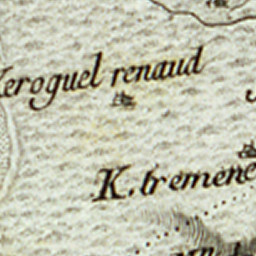 Keroguel renaud
K. tremene